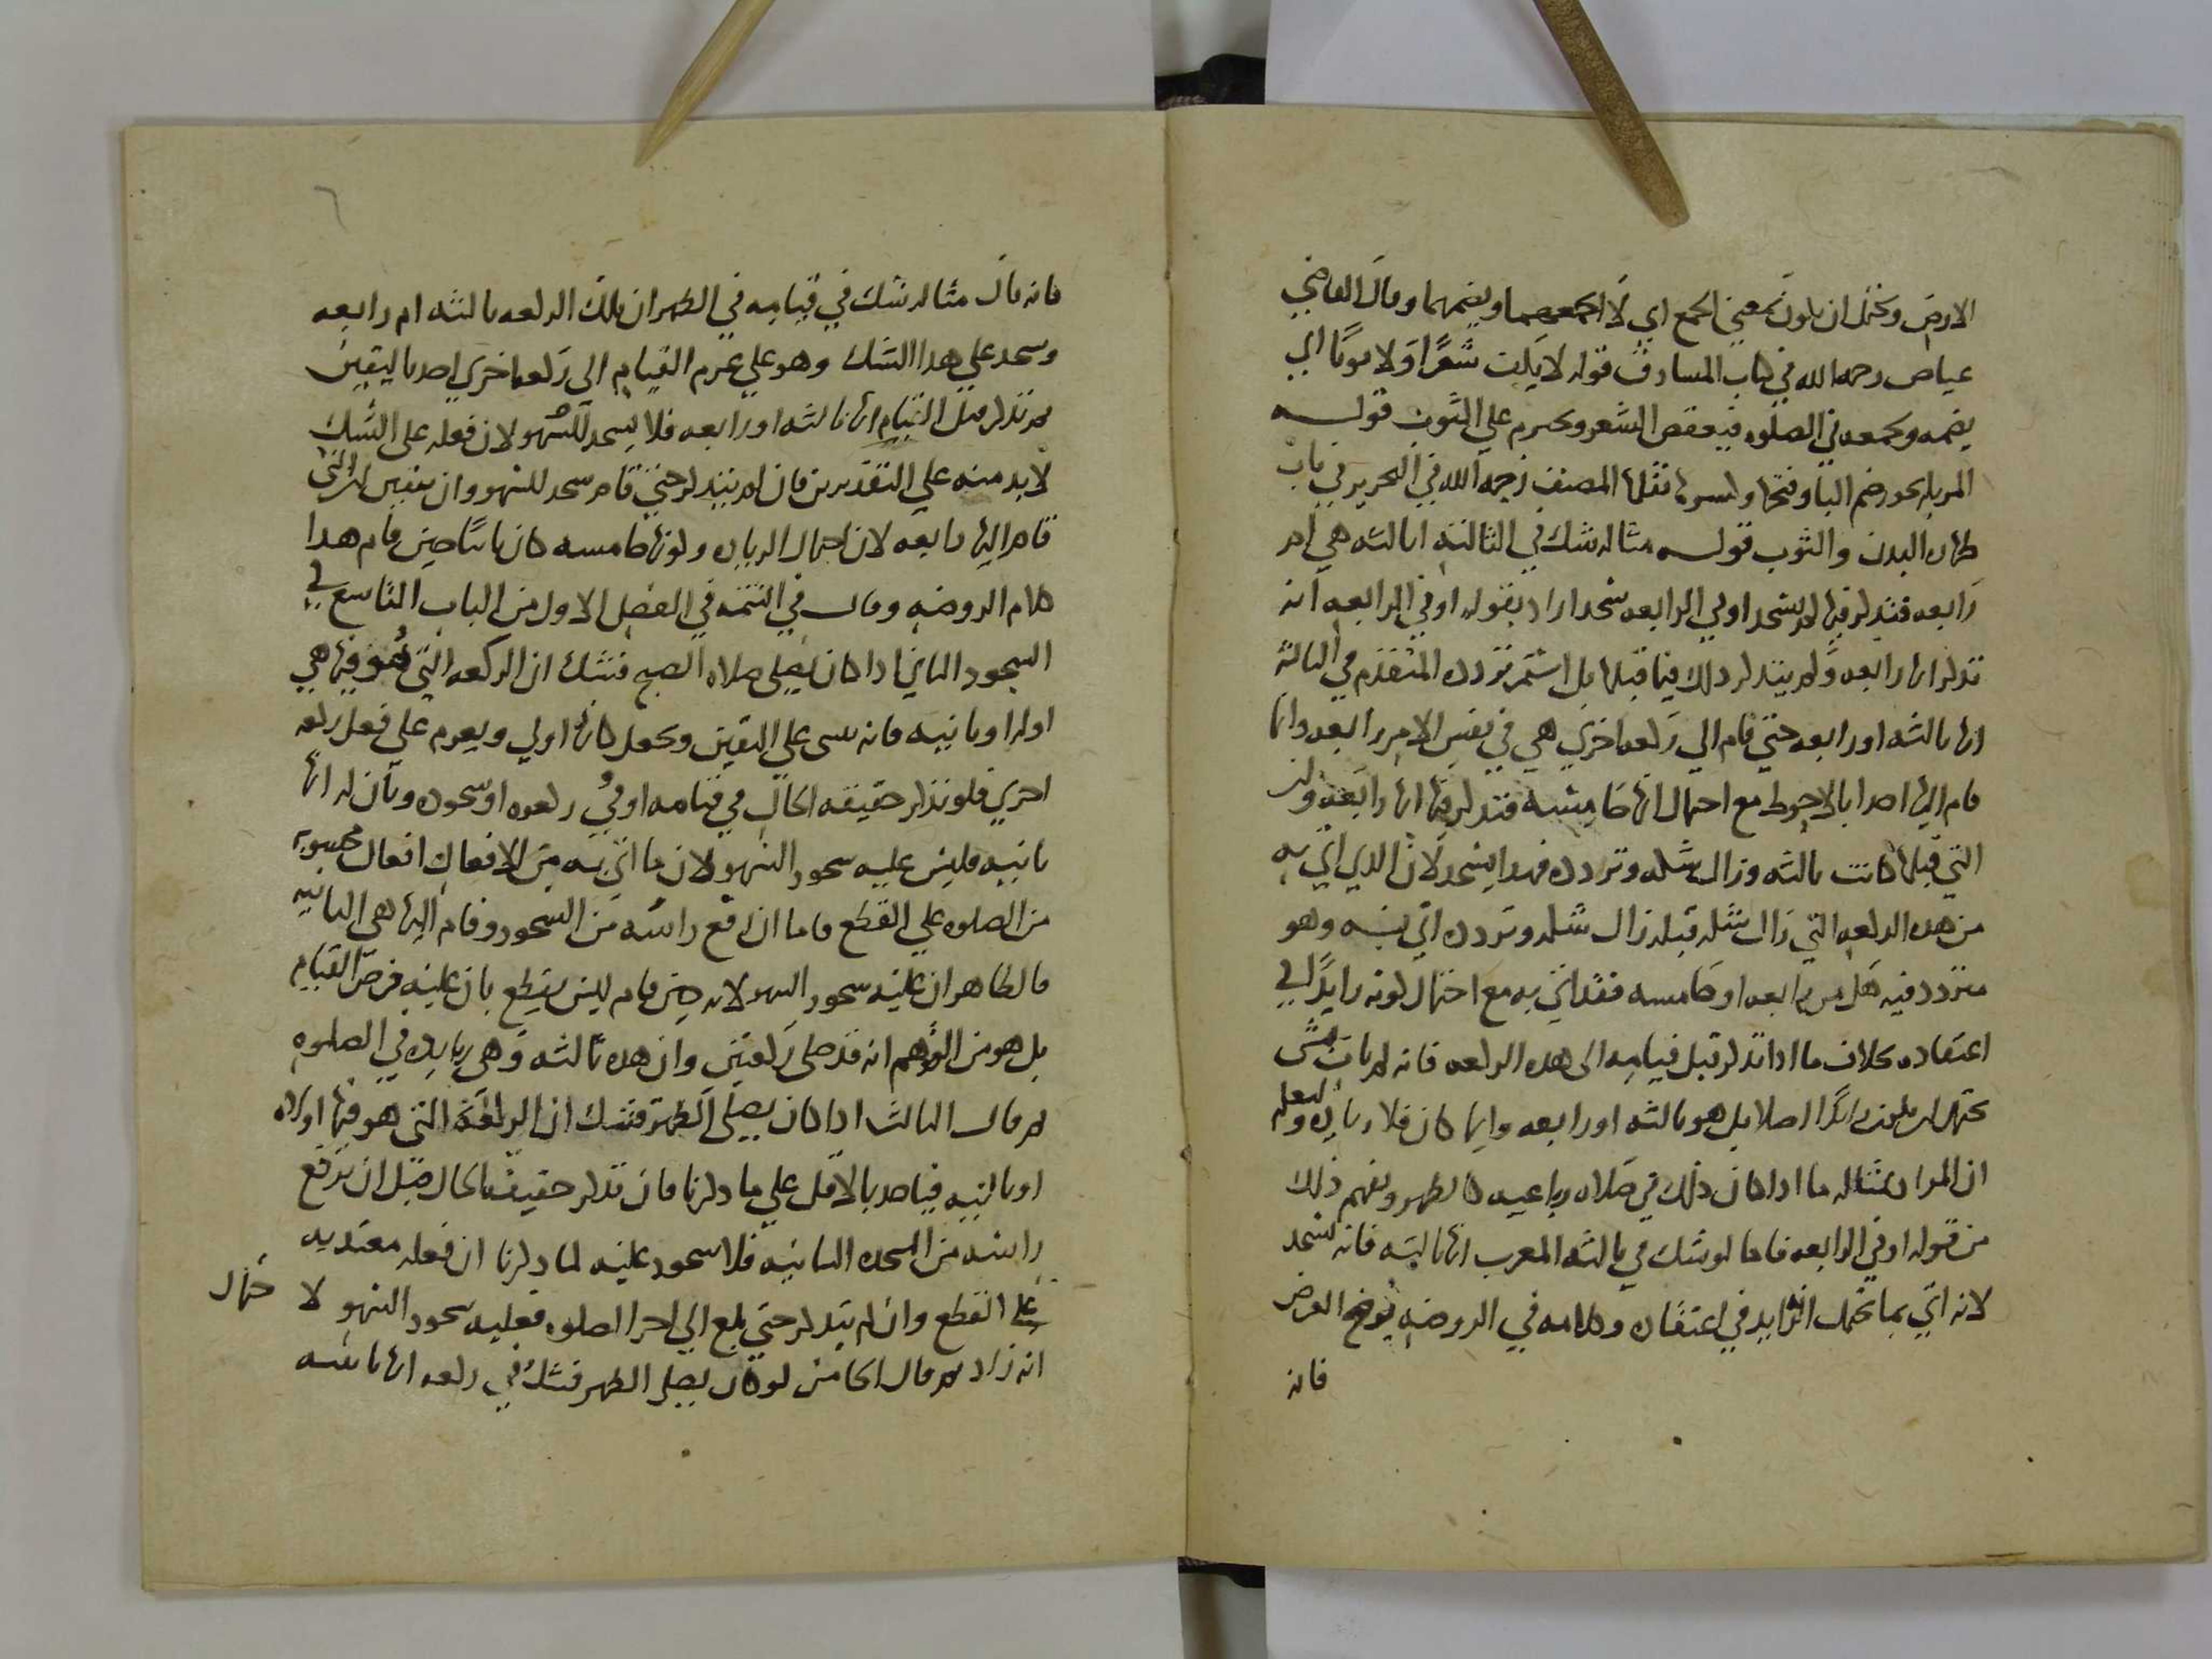 الارض ويحتمل ان يكون بمعنى الجمع اي لا يجمعهما ويضمهما وقال القاضي
عياض رحمه الله في كتاب المشارق قوله لا يكفت شعرا ولا ثوبا اي
يضمه ويجمعه في الصلوه فيعقص الشعر ويحتزم على الثوب قوله
المزبله بجور ضم البا وفتحها وكسرها نقلها المصنف رحمه الله في التحرير في باب
طهاره البدن والثوب قوله مثاله شك في الثالثه اثالثه هي ام
رابعه فتذكر فيها لم يسجد او في الرابعه سجد اراد بقوله او في الرابعه انه
تذكر انها رابعه ولم يتذكر ذلك فيما قبلها بل استمر تردده المتقدم في الثالثه
انها ثالثه او رابعه حتى قام الى ركعه اخرى هي في نفس الامر رابعه وانما
قام اليها اخذا بالاحوط مع احتمال انها خامسه فتذكر فيها انها رابعه وان
التي قبلها كانت ثالثه وزال شكه وتردده فهذا يسجد لان الذي اتى به
من هذه الركعه التي زال شكه قبله زال شكه وتردده اتى به وهو
متردد فيه هل هي رابعه او خامسه فقد اتى به مع احتمال كونه زايدا في
اعتقاده بخلاف ما اذا تذكر قبل قيامه الى هذه الركعه فانه لم يات بشي
يحتمل ان يكون زايدا اصلا بل هو ثالثه او رابعه وايما كان فلا زياده وليعلم
ان المراد بمثاله ما اذا كان ذلك في صلاه رباعيه كالظهر ويفهم ذلك
من قوله او في الرابعه فاما لو شك في ثالثه المغرب انها ثالثه فانه يسجد
لانه اتى بما يحتمل انه زايد في اعتقاده وكلامه في الروضه يوضح الغرض
فانه
فانه قال مثاله شك في قيامه في الظهر ان تلك الركعه ثالثه ام رابعه
وسجد على هذا الشك وهو على عزم القيام الى ركعه اخرى اخذا باليقين
ثم تذكر قبل القيام انها ثالثه او رابعه فلا يسجد للسهو لان فعله على الشك
لا بد منه على التقديرين فان لم يتذكر حتى قام سجد للسهو وان تيقن ان التي
قام اليها رابعه لان احتمال الزياده وكونها خامسه كان ثابتا حين قام هذا
كلام الروضه وقال في التتمه في الفصل الاول من الباب التاسع في
السجود الثاني اذا كان يصلي صلاه الصبح فشك ان الركعه التي هو فيها هي
اوله او ثانيه فانه يبني على اليقين ويجعل كانها اولي ويعزم على فعل ركعه
اخري فلو تذكر حقيقه الحال في قيامه او في ركوعه او سجوده وبان له انها
ثانيه فليس عليه سجود السهو لان ما اتى به من الافعال افعال محسوبه
من الصلوه على القطع فاما ان رفع راسه من السجود وقام اليها هي الثانيه
فالظاهر ان عليه سجود السهو لانه حين قام ليس يقطع بان عليه فرض القيام
بل هو من الوهم انه قد صلى ركعتين وان هذه ثالثه وهي زياده في الصلوه
ثم قال الثالث اذا كان يصلي الظهر فشك ان الركعه التي هو فيها اوله
او ثانيه فياخذ بالاقل على ما ذكرنا فان تذكر حقيقه الحال قبل ان يرفع
راسه من السجده الثانيه فلا سجود عليه لما ذكرنا ان فعله معتد به
على القطع وان لم يتذكر حتى بلغ الى اخر الصلوه فعليه سجود السهو لا حتمال
انه زاد ثم قال الخامس لو كان يصلي الظهر فشك في ركعه انها ثانيه